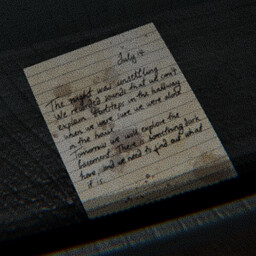 July 14
The night was unsettling.
We recorded sounds that we can't
explain. Footsteps in the hallway
when we were sure we were alone
in the house.
Tomorrow we will explore the
basement. There is something dark
here, and we need to find out what
it is.